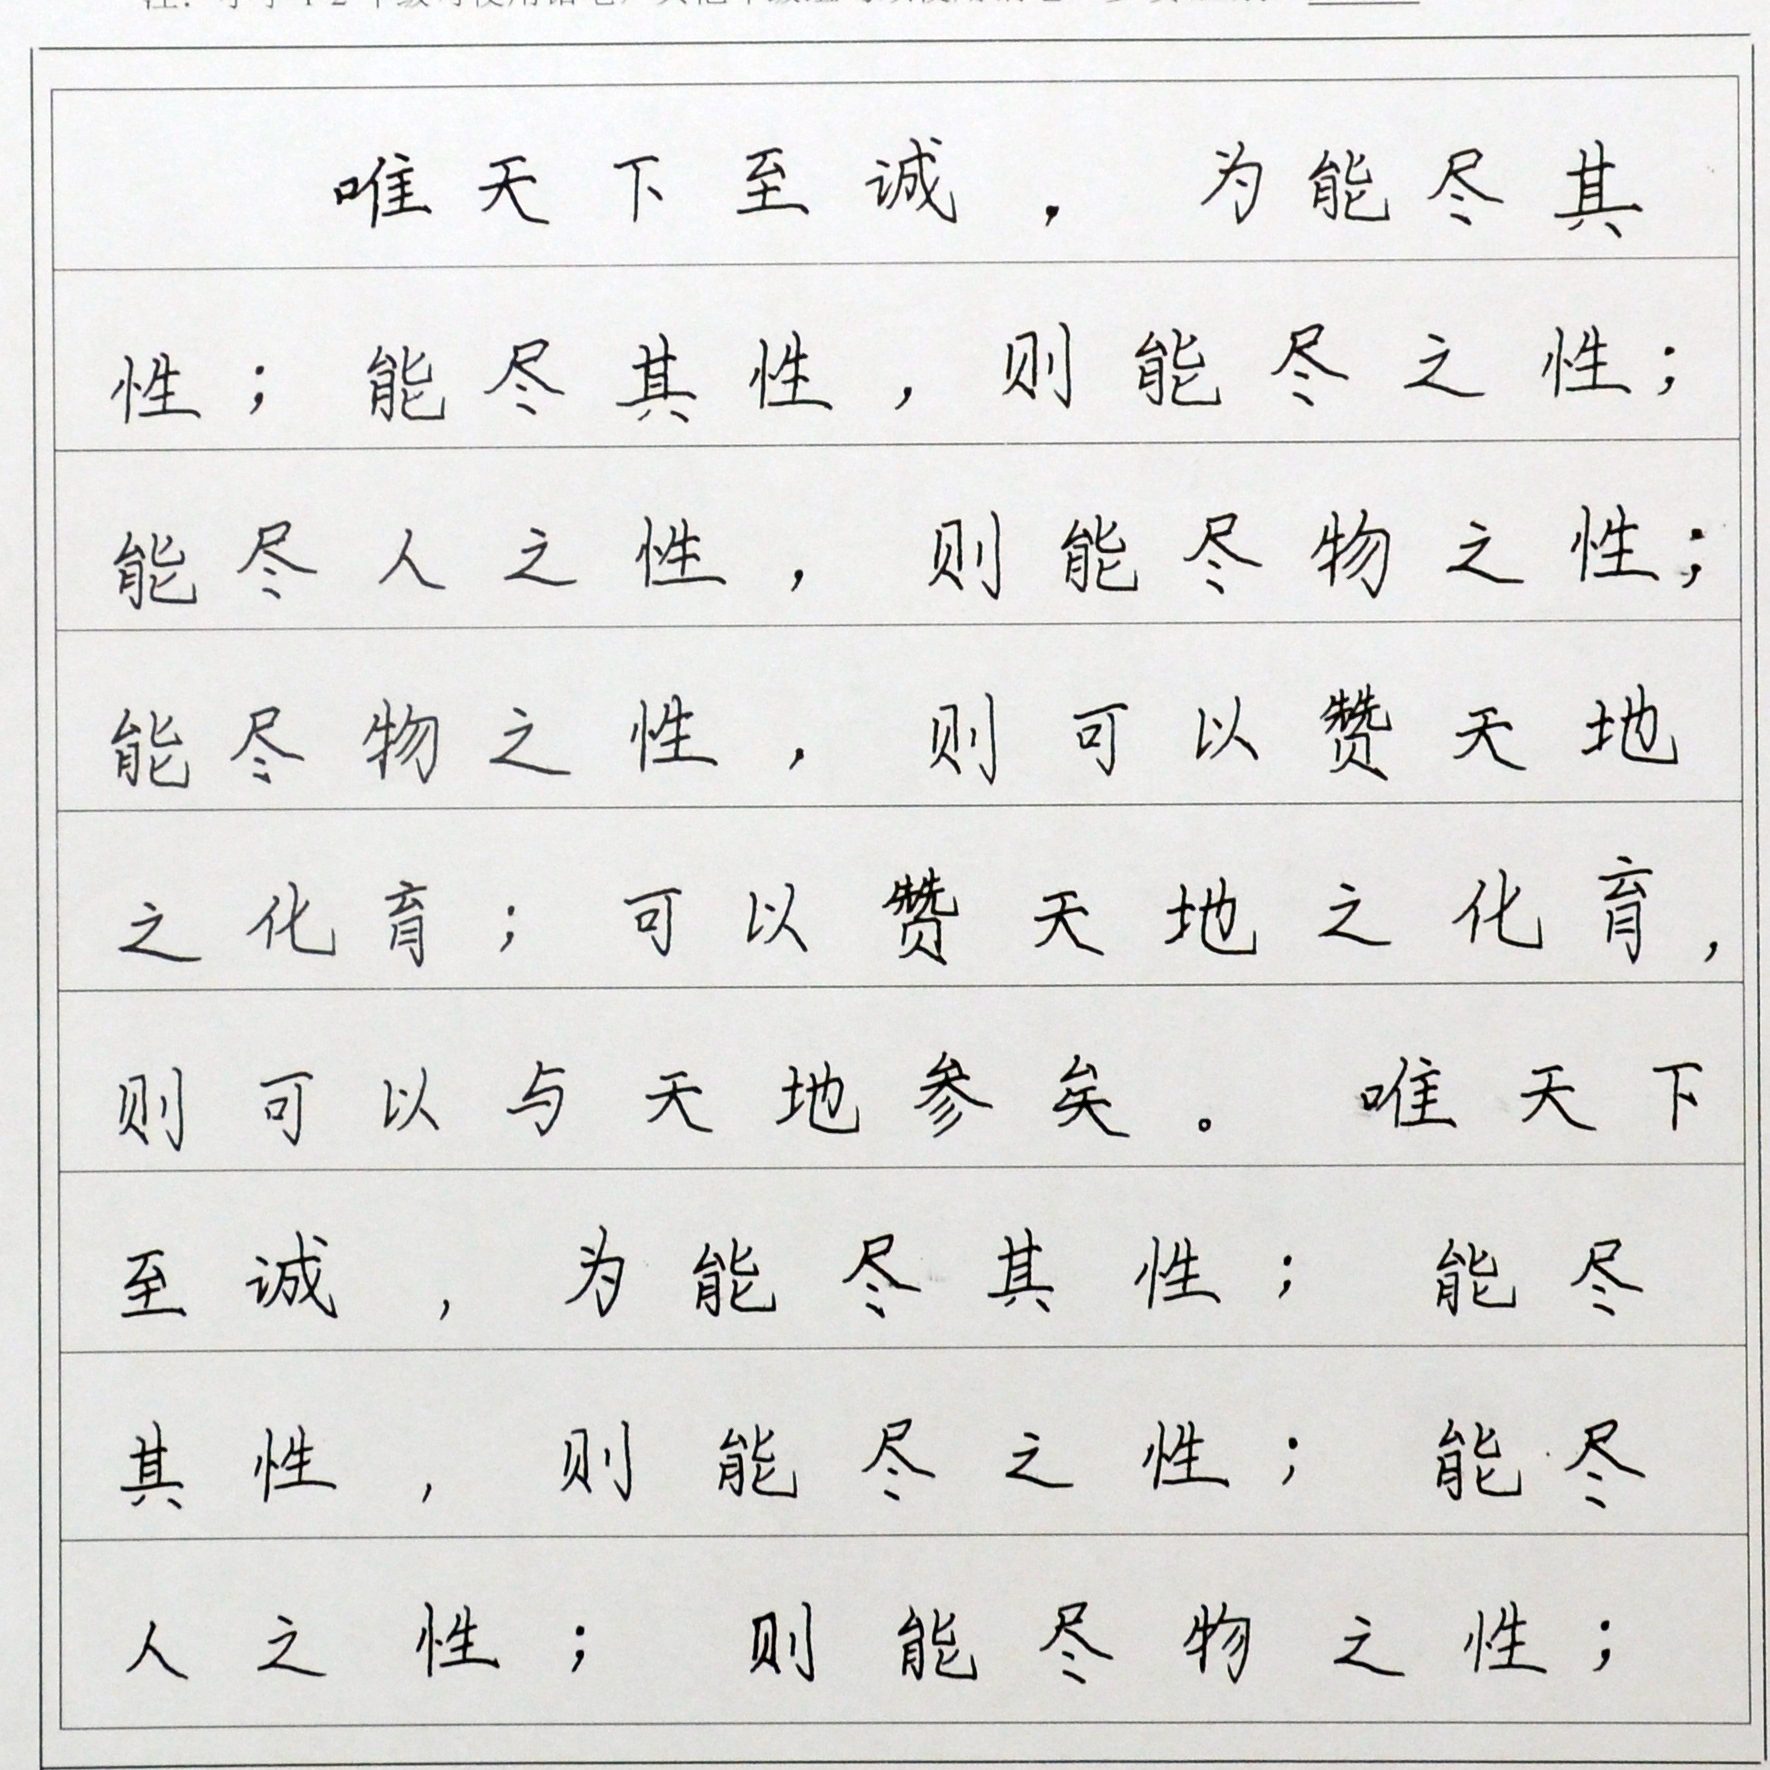 唯天下至诚，为能尽其
性；能尽其性，则能尽之性；
能尽人之性，则能尽物之性；
能尽物之性，则可以赞天地
之化育；可以赞天地之化育，
则可以与天地参矣。唯天下
至诚，为能尽其性；能尽
其性，则能尽之性；能尽
人之性；则能尽物之性；